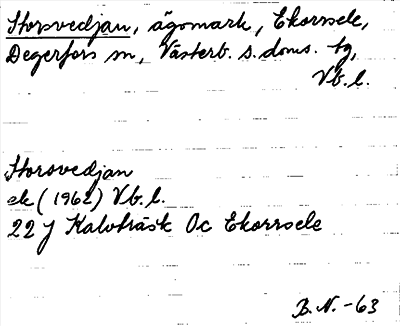 Storsvedjan, ägomark, Ekorrsele,
Degerfors sn, Västerb. s. doms. tg,
Vb. l.
Storsvedjan
ek (1962) Vb. l.
22 J Kalvträsk Oc Ekorrsele
B.N. -63